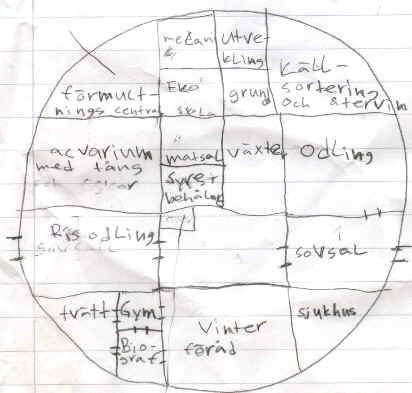 mekan
utve-
kling
Käll-
sortering
och återvin
förmult-
nings central
Eko
skola
grund
acvarium
med tång
matsal
växter
odling
syre
behålare
Risodling
sovsal
sovsal
tvätt
Gym
Bio-
graf
vinter
föråd
sjukhus